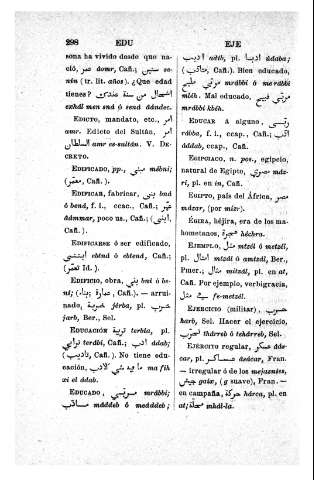 298 EDU EJE
sona ha vivido desde que na-
ció, عمر ãomr, Cañ.; سنين se-
nin (tr. lit. años). ¿Que edad
tienes? اشحال من سنة عندك
exhál men sná ó send ãándec.
EDICTO, mandato, etc., امر
amr. Edicto del Sultán, امر
السلطان amr es-sultán. V. DE-
CRETO.
EDIFICADO, pp., مبني mébni;
(معمّر, Cañ.).
EDIFICAR, fabricar, بنى bná
ó bend, f. i., ccac., Cañ.; عمّر
ãámmar, poco us., Cañ.; (ابنى,
Cañ.).
EDIFICARSE ó ser edificado,
ابتنى ebtná ó ebtend, Cañ.;
(تعمّر Id.).
EDIFICIO, obra, بني bni ó be-
ni; (بناء; عمارة, Cañ.). — arrui-
nado, خربة jérba, pl. خرب
jarb, Ber., Sel.
EDUCACIÓN توبية terbia, pl.
توابي terábi, Cañ.; ادب ádab;
(تاديب, Cañ.). No tiene edu-
cación, ما فيه شي لادب ma fih
xi el ádab.
EDUCADO, مربّي mrábbi;
مادّب máddeb ó meddeb;
اديب adib, pl. ادبا ádaba;
(متادّب, Cañ.). Bien educado,
مربّي مليح mrábbi ó merábbi
mlëh. Mal educado, مربّي قبيح
mrábbi kbëh.
EDUCAR á alguno, ربّى
rábba, f. i., ccap., Cañ.; ادّب
áddab, ccap., Cañ.
EGIPCIACO, n. pos., egipcio,
natural de Egipto, مصري másr-
ri, pl. en in, Cañ.
EGIPTO, país del África, مصر
mácar, (por mixr).
ÉGIRA, héjira, era de los ma-
hometanos, هجرة héchra.
EJEMPLO, مثل mtzál ó metzál,
pl. امثال mtzál ó amtzál, Ber.,
Pmer.; مثال mitzál, pl. en at,
Cañ. Por ejemplo, verbigracia,
في مثل fe-metzál.
EJERCICIO (militar), حرب
harb, Sel. Hacer el ejercicio,
تحرّب thárreb ó tehárreb, Sel.
EJÉRCITO regular, عسكر ãás-
car, pl. عساكر ãsácar, Fran.
— irregular ó de los mejaznies,
جيش gaix, (g suave), Fran. —
en campaña, حركة hárca, pl. en
at; محلة mhál-la.